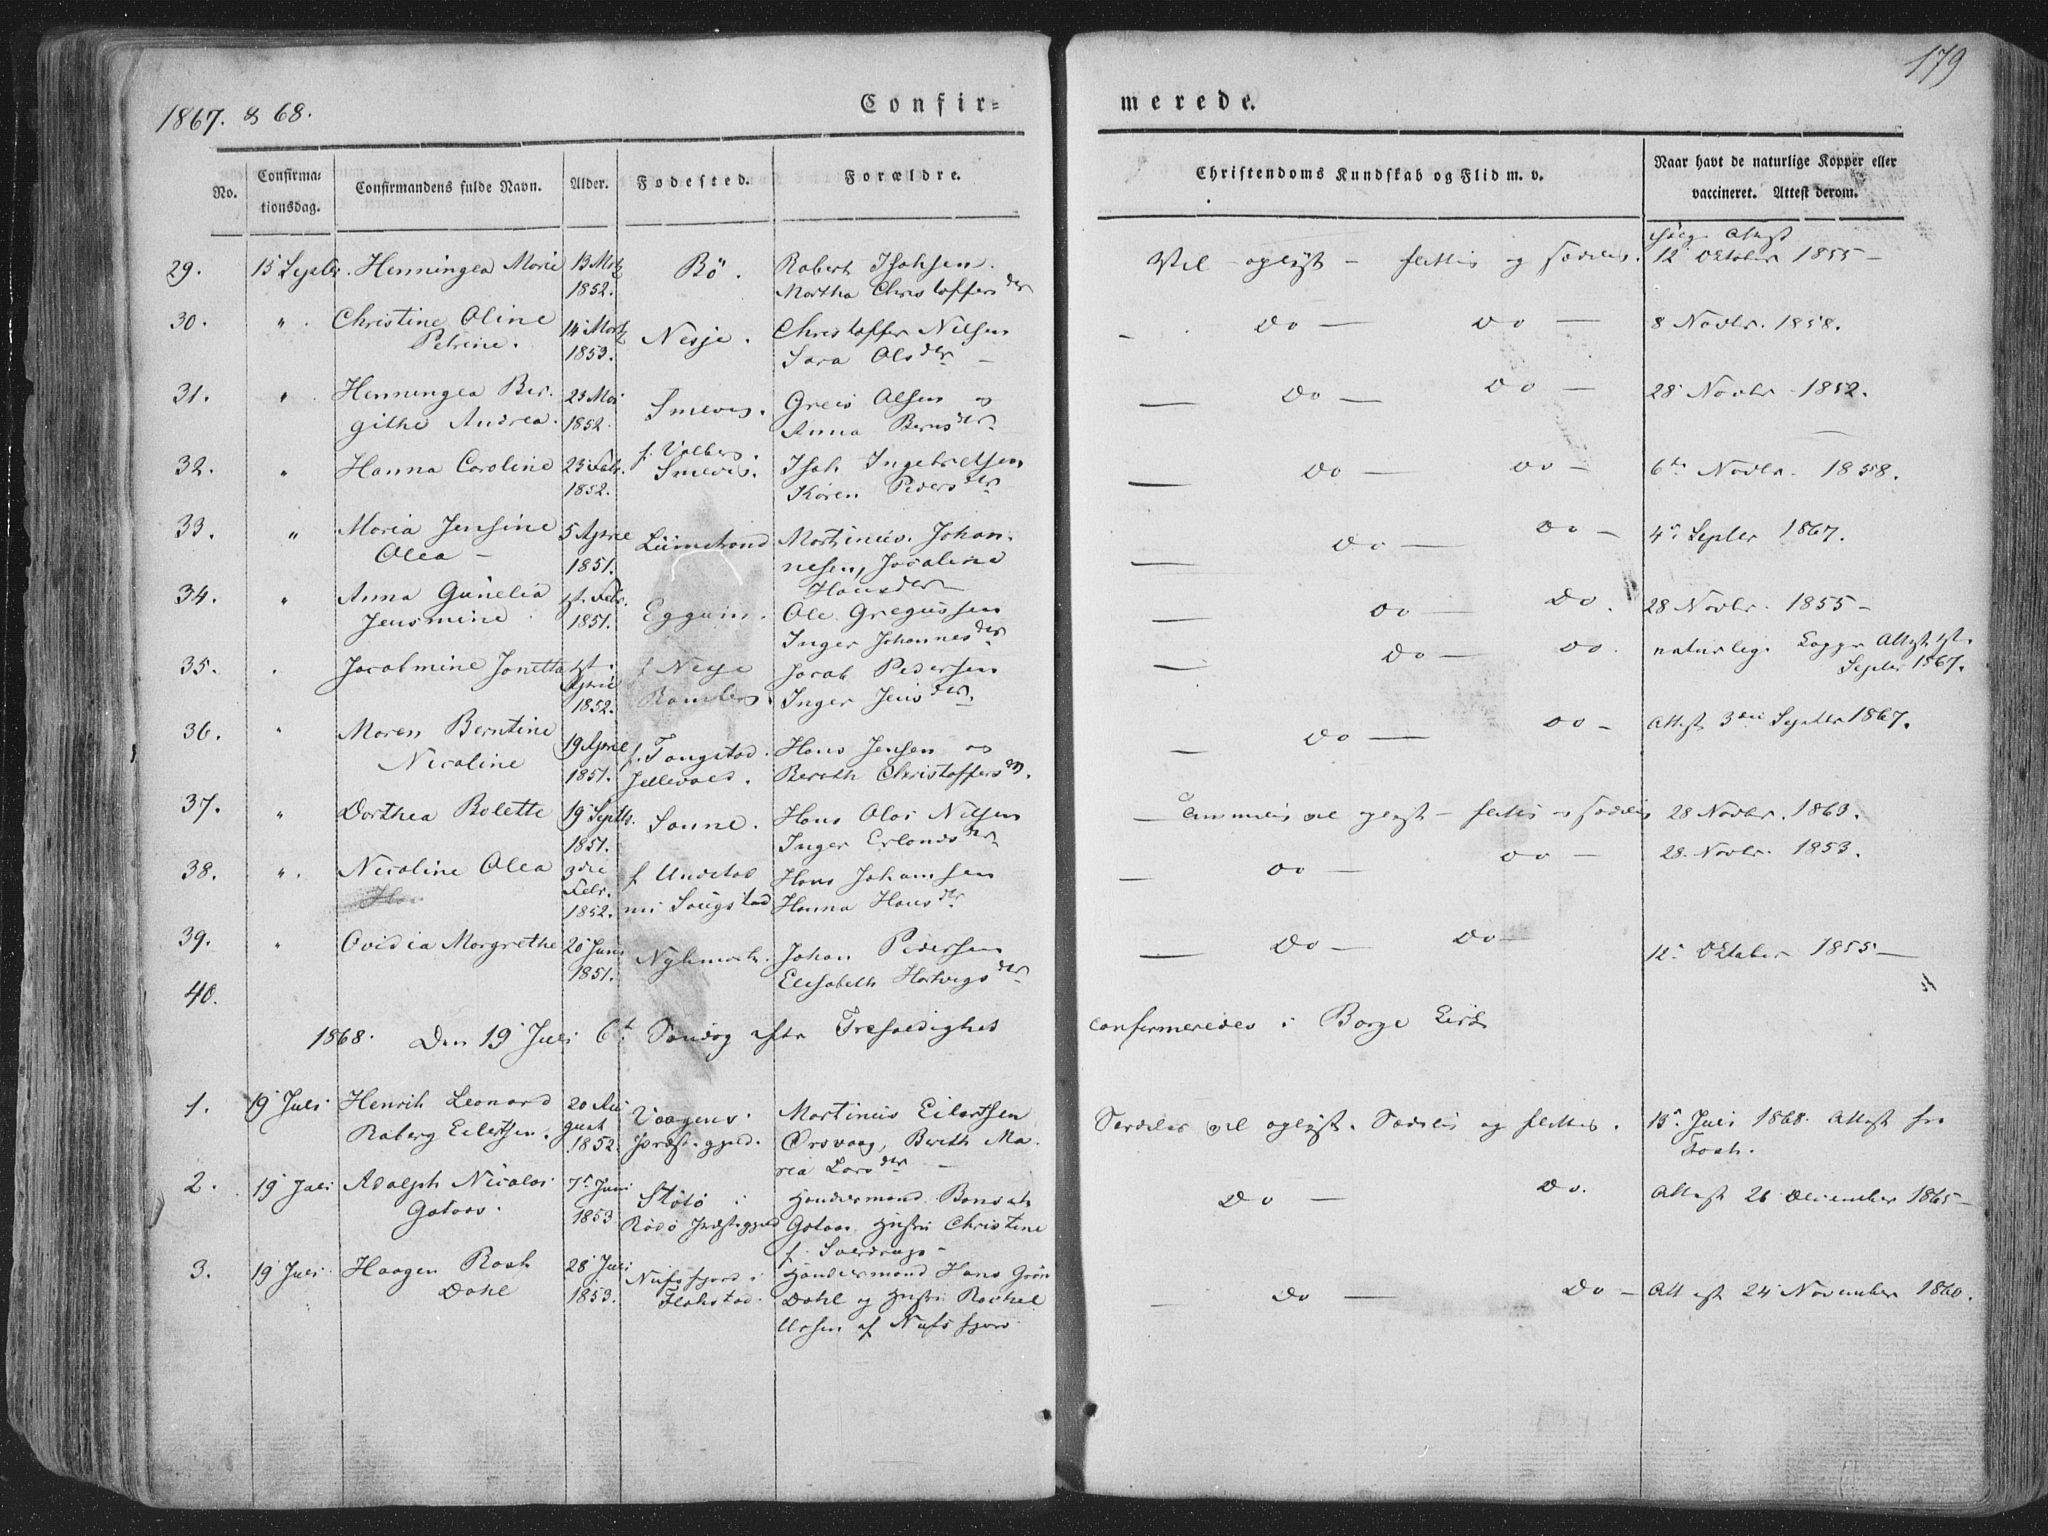 179
1867. & 68.
Confir=
merede.
No.
Confirma-
tionsdag.
Confirmandens fulde Navn.
Alder.
Fødested.
Forældre.
Christendoms Kundskab og Flid m. v.
Naar havt de naturlige Kopper eller
vaccineret. Attest derom.
29. 15 Septbr. Henningea Marie 13 Mrtz 1852. Bö. Robert Isaksen.
Martha Christoffers der
Vel oplyst - flittig og sædelig. 12 Oktober 1855 -
30. " Christine Oline
Petrine. 14 Mrtz 1853. Nesje. Christoffer Nilsen
Sara Ols der -
Do - Do - 8 Novbr. 1858.
31. " Henningea Ber-
githe Andrea. 23 Mai 1852. Smevig. Greis Olsen og
Anna Berns der
- Do - Do - 28 Novbr 1852.
32. " Hanna Caroline 23 Febr. 1852. f. Valberg.
Smevig. Isak Ingebretsen
Karen Peders der
- Do - Do - 6te Novbr. 1858.
33. " Maria Jensine
Olea - 5 April 1851. Limstrand Martinus Johan-
nesen, Jocobine
Hans der
- Do - Do - 4 Septbr 1867.
34. " Anna Gunelia
Jensmine 1st. Febr. 1851. Eggum. Ole Gregussen
Inger Johannes der
- Do - Do. 28 Novbr. 1855 -
35. " Jacobmine Jonetta 1st. April 1852. f Nesje
Ramberg. Jacob Pedersen
Inger Jens der.
- Do - Do. naturlig. Kopper Attest 1st.
Septbr 1867.
36. " Maren Berntine
Nicoline 19 April 1851. f. Tangstad.
Jellevold. Hans Jensen og
Bereth Christoffers der.
- Do - Do - Attest 3die Septbr 1867.
37. " Dorthea Bolette 19 Septbr. 1851. Sanne. Hans Olai Nilsen
Inger Erlands der
- vel oplyst - flittig og sædelig 28 Novbr. 1863.
38. " Nicoline Olea 3die Febr. 1852. f Unstad
nu Saugstad Hans Johansen
Hanna Hans der
- Do - Do - 28. Novbr. 1853.
39. " Ovidia Margrethe 20 Juni 1851. Johan Pedersen
Elisabeth Hartvigs der
- Do - Do - 12 Oktober 1855 -
40.
1868. Den 19 Juli 6te Søndag efter Trefoldighed confirmeredes i Borge Kirke
1. 19 Juli Henrik Leonard
Raberg Eilertsen. 20 Au-
gust 1852. Vaagens
Præstegjeld. Martinus Eilertsen
Örsvaag, Berith Ma-
rea Lars der -
Særdeles vel oplyst. Sædelig og flittig. 13 Juli 1868. Attest fra
2. 19 Juli Adolph Nicolai
Gotaas. 7 Juni 1853 Stötö i
Rödö Præstegjeld Handelsmand
Gotaas Hustru Christine
f. Sverdrup -
Do - Do. Attest 26 December 1865 -
3. 19 Juli Haagen Rask
Dahl 28 Juli 1853. Nufsfjord i
Flakstad. Handelsmand Hans Grön
Dahl og Hustru Rachel
af Nufsfjord
- Do - Do - Attest 24 November 1860.